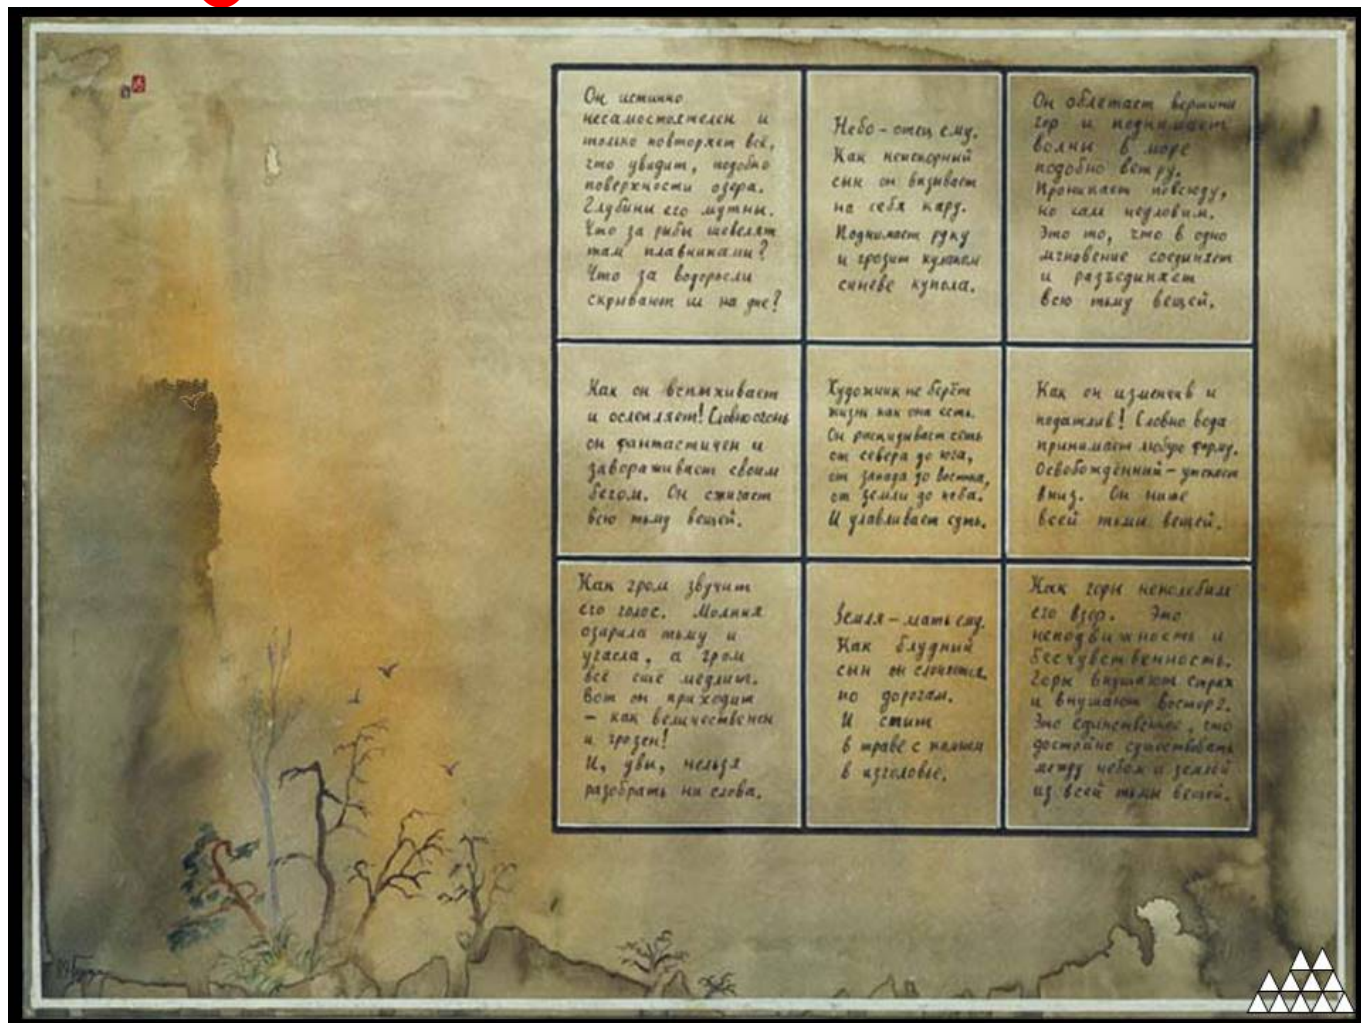 Он истинно
несамостоятелен и
только повторяет всё,
что увидит, подобно
поверхности озера.
Глубины его мутны.
Что за рыбы шевелят
там плавниками?
Что за водоросли
скрывают ил на дне?
Небо – отец ему.
Как непокорный
сын он вызывает
на себя кару.
Поднимает руку
и грозит кулаком
синеве купола.
Он облетает вершины
гор и поднимает
волны в море
подобно ветру.
Проникает повсюду,
но сам неуловим.
Это то, что в одно
мгновение соединяет
и разъединяет
всю тьму вещей.
Как он вспыхивает
и ослепляет! Словно огонь
он фантастичен и
завораживает своим
бегом. Он сжигает
всю тьму вещей.
Художник не берёт
жизнь как она есть.
Он раскидывает сеть
от севера до юга,
от запада до востока,
от земли до неба.
И улавливает суть.
Как он изменчив и
податлив! Словно вода
принимает любую форму.
Освобождённый – утекает
вниз. Он ниже
всей тьмы вещей.
Как гром звучит
его голос. Молния
озарила тьму и
угасла, а гром
всё ещё медлит.
Вот он приходит
– как величественен
и грозен!
И, увы, нельзя
разобрать ни слова.
Земля – мать ему.
Как блудный
сын он слоняется
по дорогам.
И спит
в траве с камнем
в изголовье.
Как горы неколебим
его взор. Это
неподвижность и
бесчувственность.
Горы внушают страх
и внушают восторг.
Это единственное, что
достойно существовать
между небом и землёй
из всей тьмы вещей.